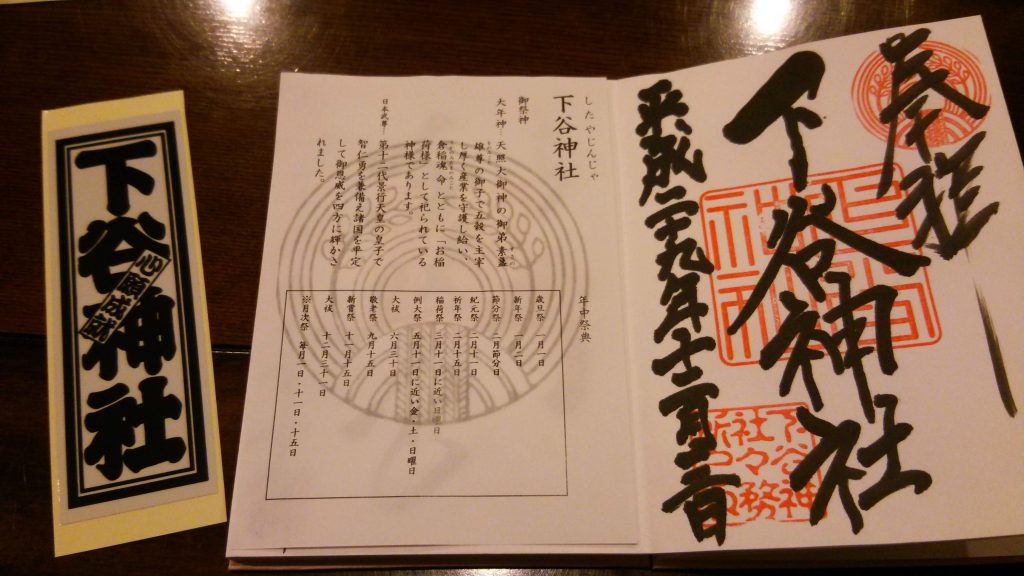 奉拝
下谷神社
平成二十九年
下谷神
社々務
したやじんじゃ
下谷神社
御祭神
大年神…天照大御神の御弟素盞
雄尊の御子で五穀を主宰
し厚く産業を守護し給い、
倉稲魂命とともに「お稲
荷様」として祀られている
神様であります。
日本武尊…第十二代景行天皇の皇子で
智仁勇を兼備え諸国を平定
して御恩威を四方に輝かさ
れました。
年中祭典
歳旦祭 一月一日
新年祭 一月二日
節分祭 二月節分日
紀元祭 二月十一日
祈年祭 二月十五日
稲荷祭 三月十一日に近い日曜日
例大祭 五月十一日に近い金・土・日曜日
大祓 六月三十日
敬老祭 九月十五日
新嘗祭 十一月十五日
大祓 十二月三十一日
※月次祭 毎月一日・十一日・十五日
下谷神社
心願成就